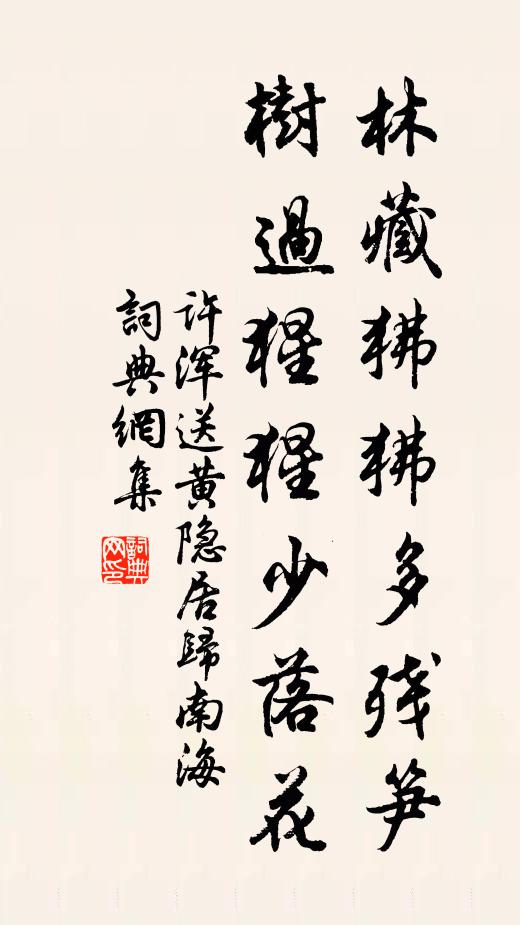 林藏狒狒多残笋
樹過猩猩少落花
许浑送黄隐居歸南海
詞典網集
詞典
网印